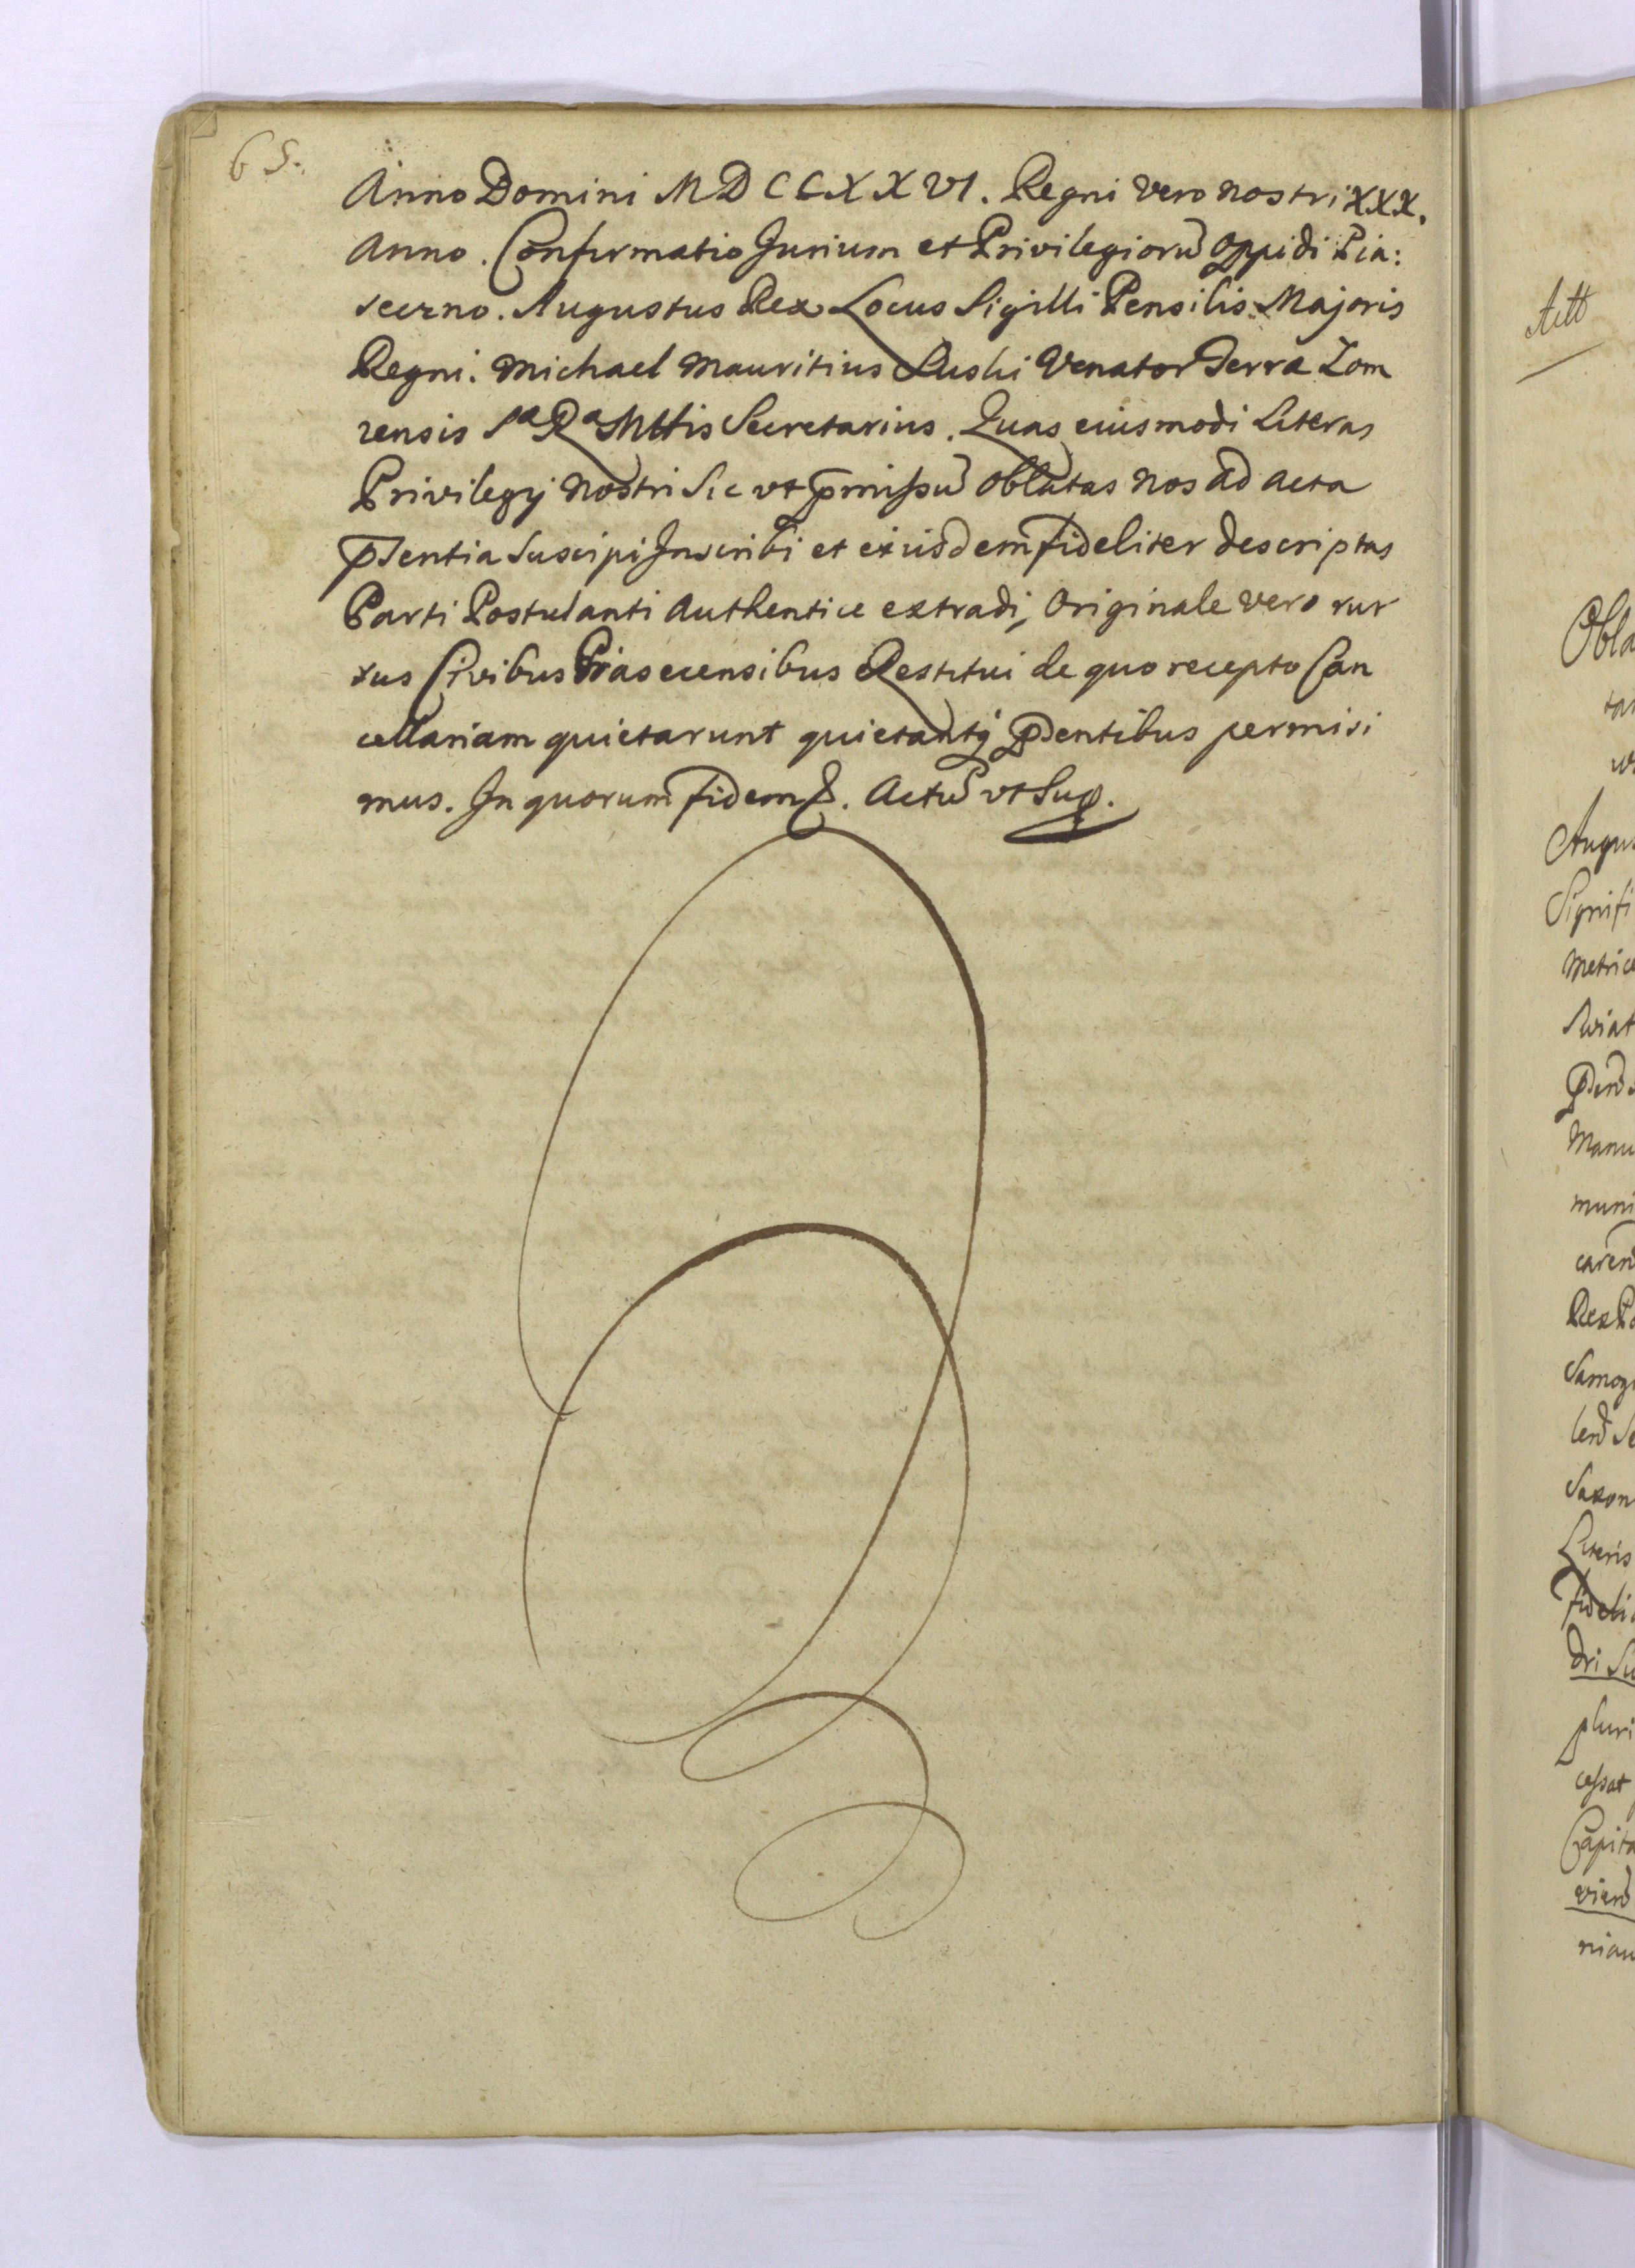 65.
Anno Domini MDCCXXVI. Regni vero nostri XXX.
Anno. Confirmatio Jurium et Privilegiorũ Oppidi Pia:
secrno. Augustus Rex Locus Sigilli Pensilis Majoris
Regni. Michael Mauritius Suski Venator Terræ Lom
zensis Sᵃ Rᵃ Mttis Secretarius. Quas eiusmodi Literas
Privilegij nostri Sic ut p̄missũ Oblatas nos ad Acta
p̄sentia Suscipi Inscribi et exiisdem fideliter descriptas
Parti Postulanti Authentice extradi, Originale vero rur
sus Civibus Piasecensibus Restitui de quo recepto Can
cellariam quietarunt quietantq̃ p̄sentibus permisi
mus. In quorum fidem &. Actũ ut Sup.
Att
Obla
Augus
Signifi
Metrice
Swiat
Manu
muni
Rex Po
Samog
Saxon
Literis
fideli
dri Su
pluri
cessat
Capita